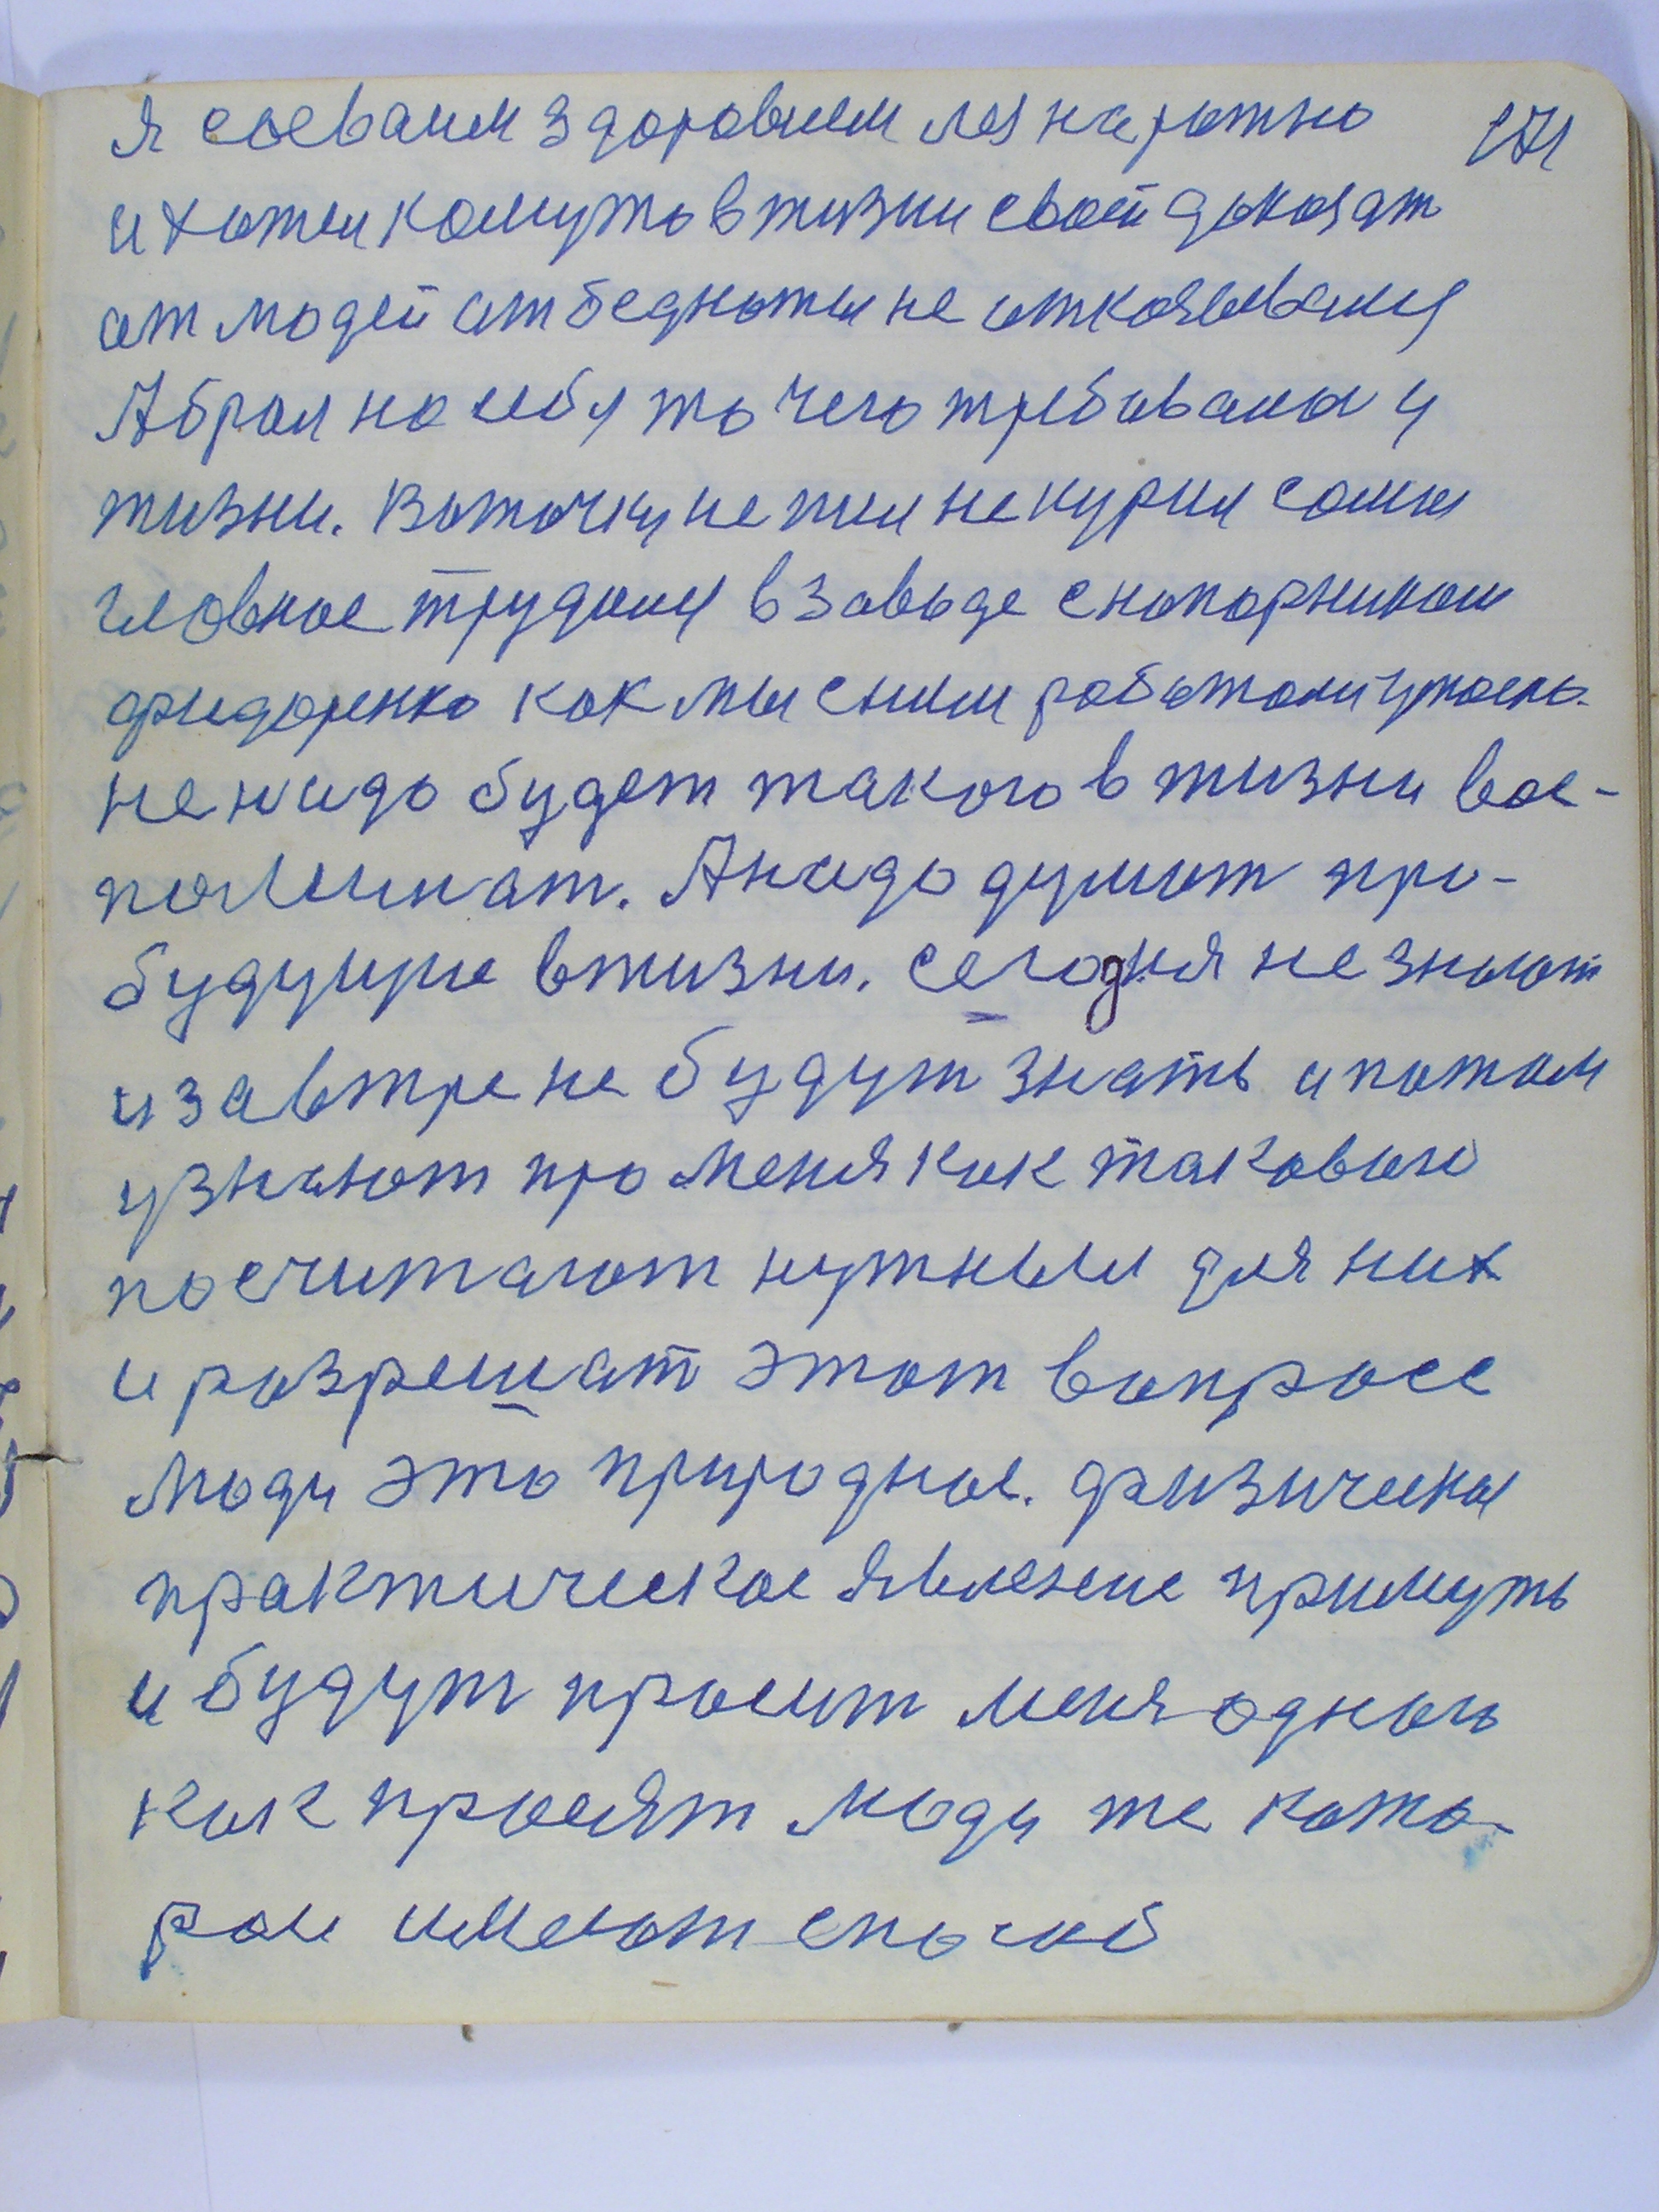 я своваим здоровием лез нарожно 171
и хотел комуто в жизни своей доказат
от людей от бедноты не отказывался
А брал на себя то чего требовала у
жизни. Воточку не пил не курил самая
гловное трудился в заводе снапорником
фидоренко как мы сним работали
не надо будет такого в жизни вос-
поминат. А надо думат про-
будущие в жизни. сегодня не знают
и завтре не будут знать и потом
узнают про меня как таковою
посчитают нужным для них
и разрешат этот вопросс
люди это природное. физическая
практическое явление примуть
и будут просит меня одного
как просят люди те кото-
рои имеют способ